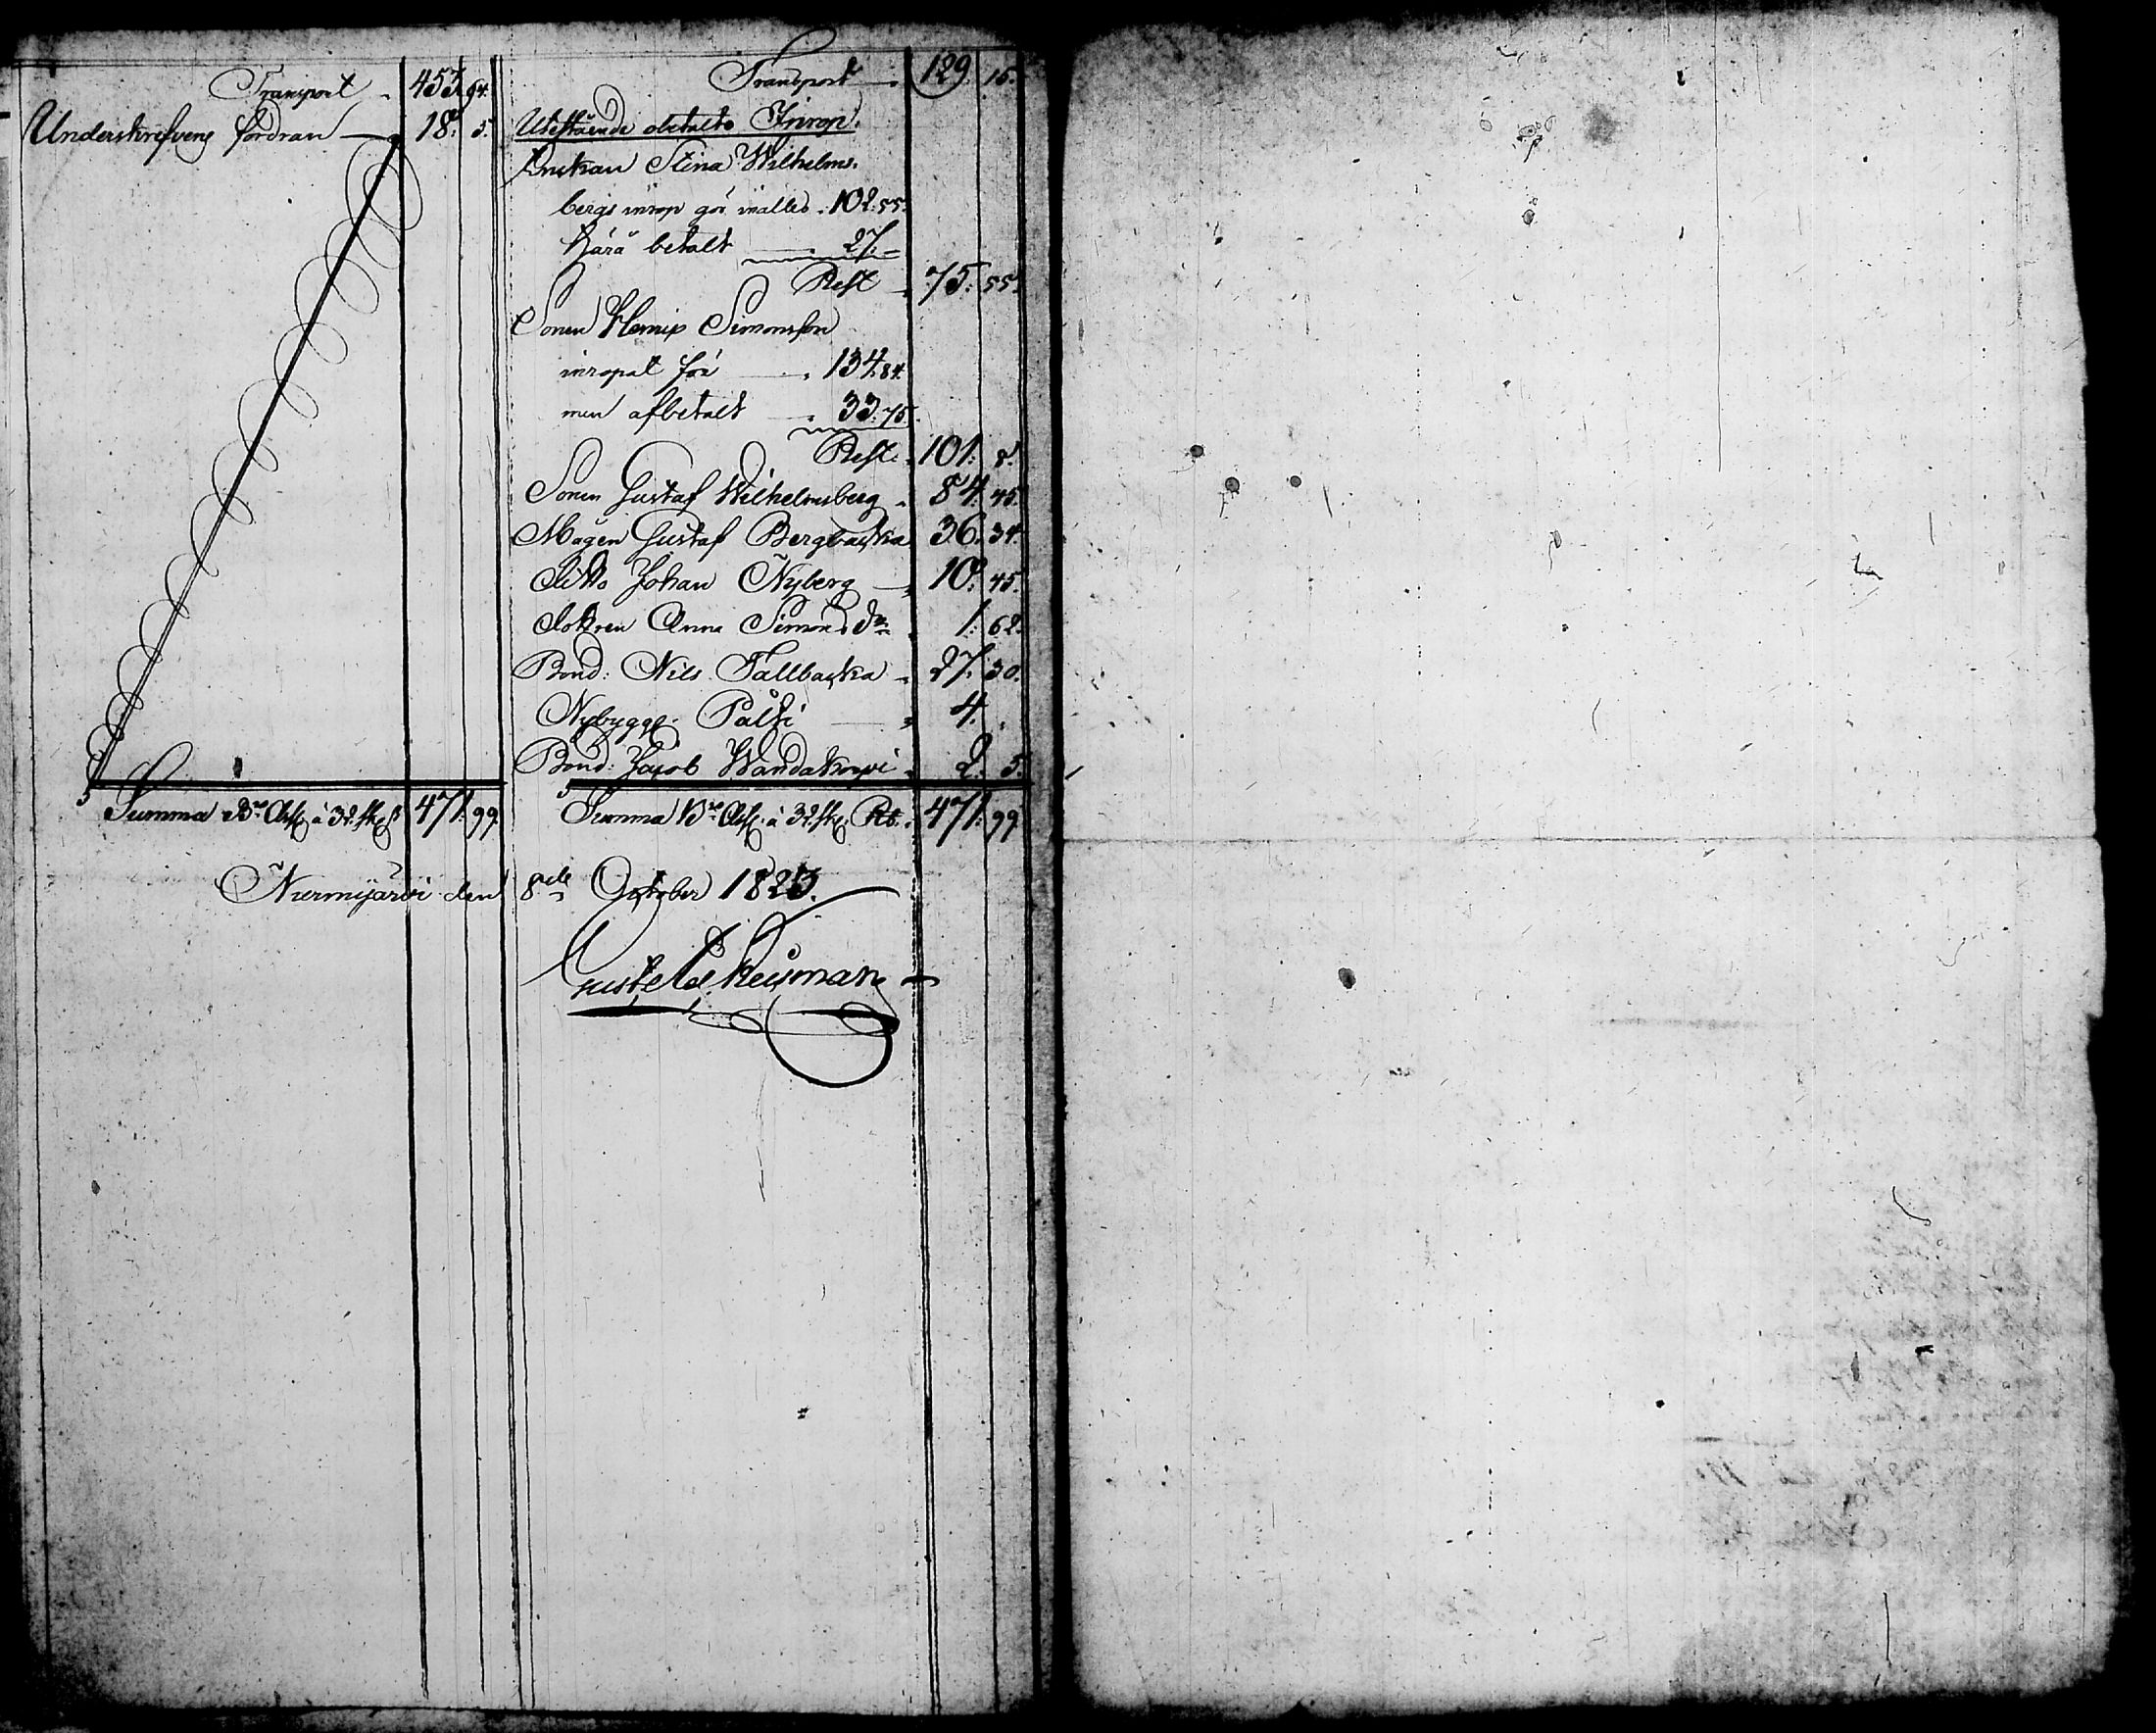 Transport 453. 94.
Underskrifvens fordran 18. 5.
Summa B:co Ass. à 32 sk 471. 99.
Transport 129. 15.
Utestående obetalte Inrop.
Enckan Stina Wilhelms-
bergs inrop gör inalles 102: 55.
härå betalt 27. —
Rest 75. 55.
Sonen Henrik Simonsson
inropat för 134. 84.
men afbetalt 33. 75.
Rest. 101. 9.
Sonen Gustaf Wilhelmsberg 84. 45.
Mågen Gustaf Bergbacka 36. 34.
Ditto Johan Nyberg 10. 45.
Dottren Anna Simonsd:r 1. 62.
Bond: Nils Tallbacka 27. 30.
Nybygg. Palti 4.
Bond: Jacob Wanda 2. 5.
Summa B:co Ass. à 32 sk Rb. 471. 99.
Niermijärvi den 8de October 1823.